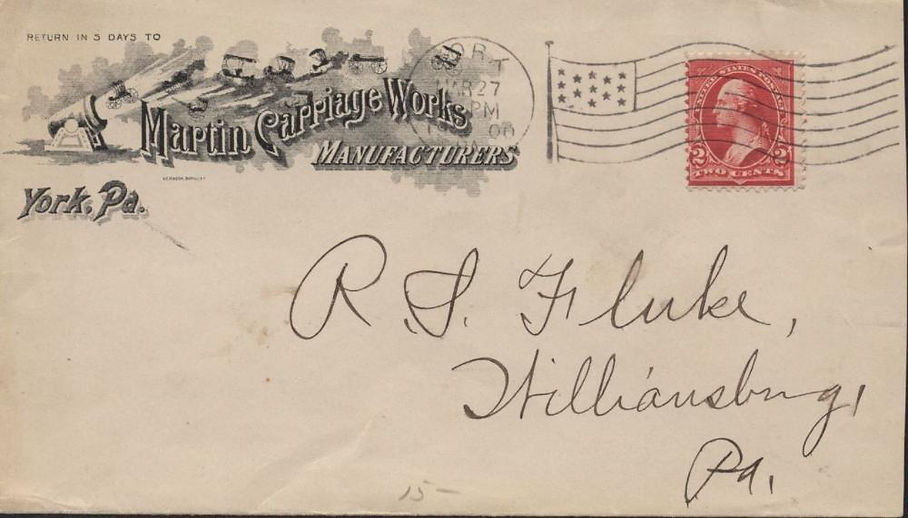 RETURN IN 5 DAYS TO
Martin Carriage Works
MANUFACTURERS
York, Pa.
YORK
MAR 27
PM
UNITED STATES POSTAGE
2 2
TWO CENTS
R. S. Fluke,
Williamsburg,
Pa.
15-